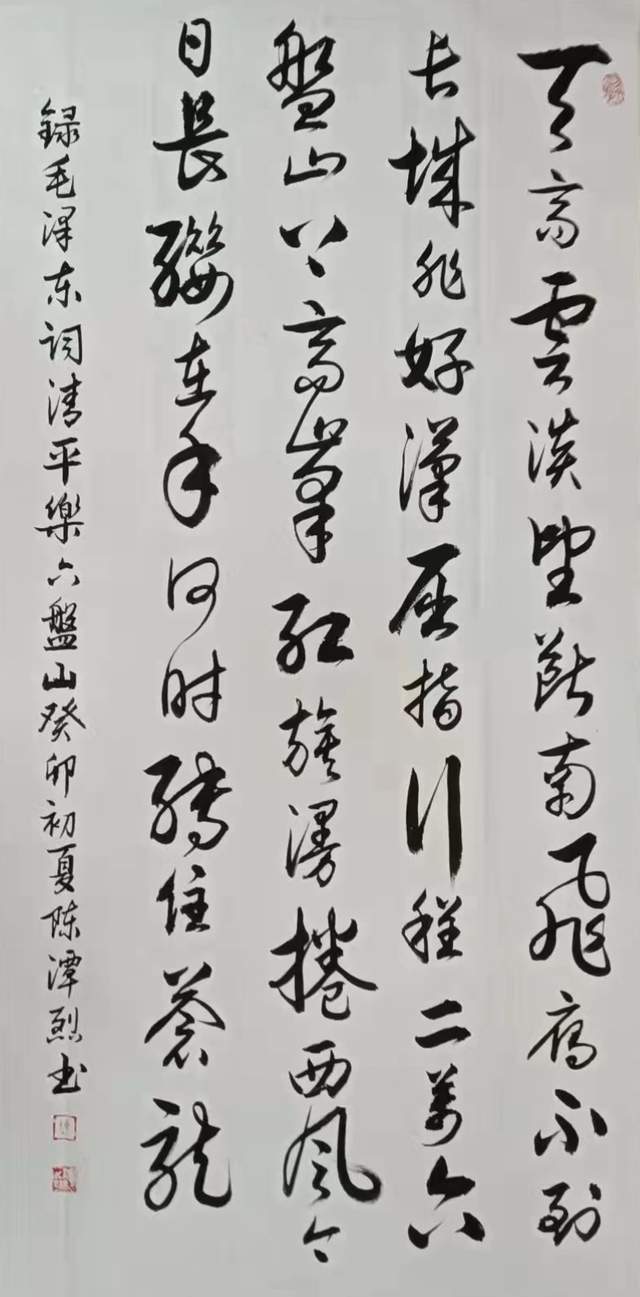 天高雲淡望断南飛雁不到
长城非好漢屈指行程二萬六
盤山上高峯紅旗漫捲西風今
日長纓在手何时縛住蒼龍
録毛泽东词清平樂六盤山癸卯初夏陈潭烈书